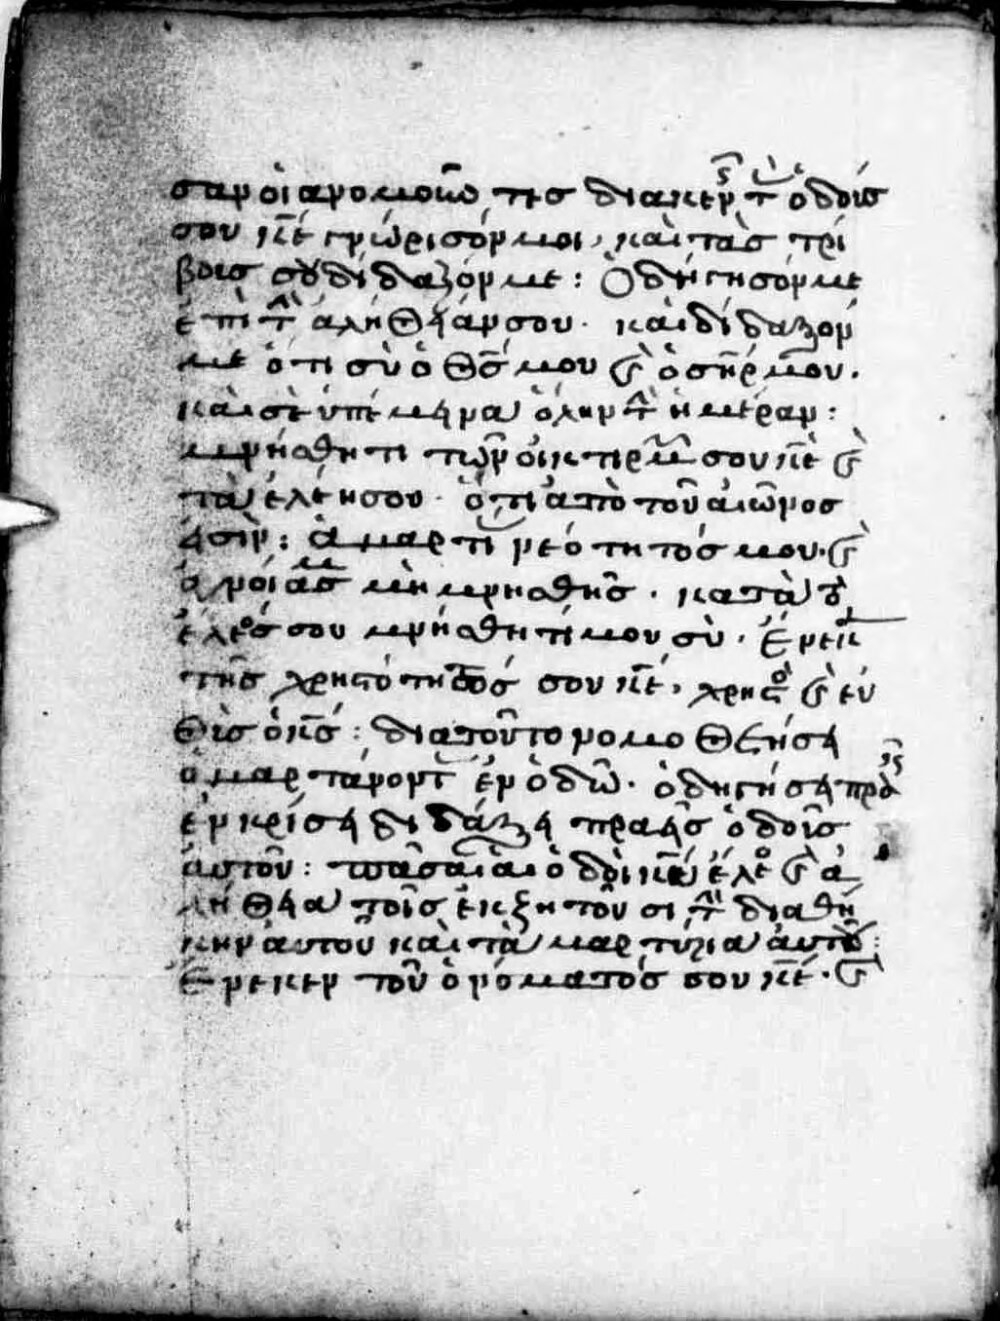 σαν οἱ ανομοῦν τες διακενῆς τ ὁδούς
σου κε γνώρισόν μοι, καὶ τὰσ τρί
βοισ σου δίδαξόν με : Ὁδήγησόν με
ἐπὶ τ ἀλήθειάν σου · καὶ δίδαξον
με ὅτι σὺ ὁ θς μου κ ὁ σηρ μου.
καὶ σὲ ὑπέμεινα ὅλην τ ἡμέραν :
μνήσθητι τῶν οἰκτιρμ σου κε κ
τὰ ἐλέη σου · ὅτι ἀπὸ τοῦ αιῶνοσ
εἰσίν : ἁμαρτί νεότητός μου · κ
ἀγνοίας μὴ μνησθῆσ · κατὰ τὸ
ἔλεός σου μνήσθητί μου σὺ · ἕνεκ
τῆσ χρηστότητός σου κε, χρηστὸ κ εὐ
θὴσ ὁ κς : διατοῦτο νομοθετήσει
ἁμαρτάνοντ ἐν ὁδῶ · ὁδηγήσει πρα
ἐν κρίσει διδάξει πραεῖς ὁδοῖσ
αὐτοῦ : πᾶσαι αἱ ὁδοὶ κυ ἔλεο κ ἀ
λήθεια τοῖσ ἐκζητοῦσι τ διαθή
κην αὐτοῦ καὶ τὰ μαρτύρια αὐτοῦ :
Ἕνεκεν τοῦ ὀνόματός σου κε · κ